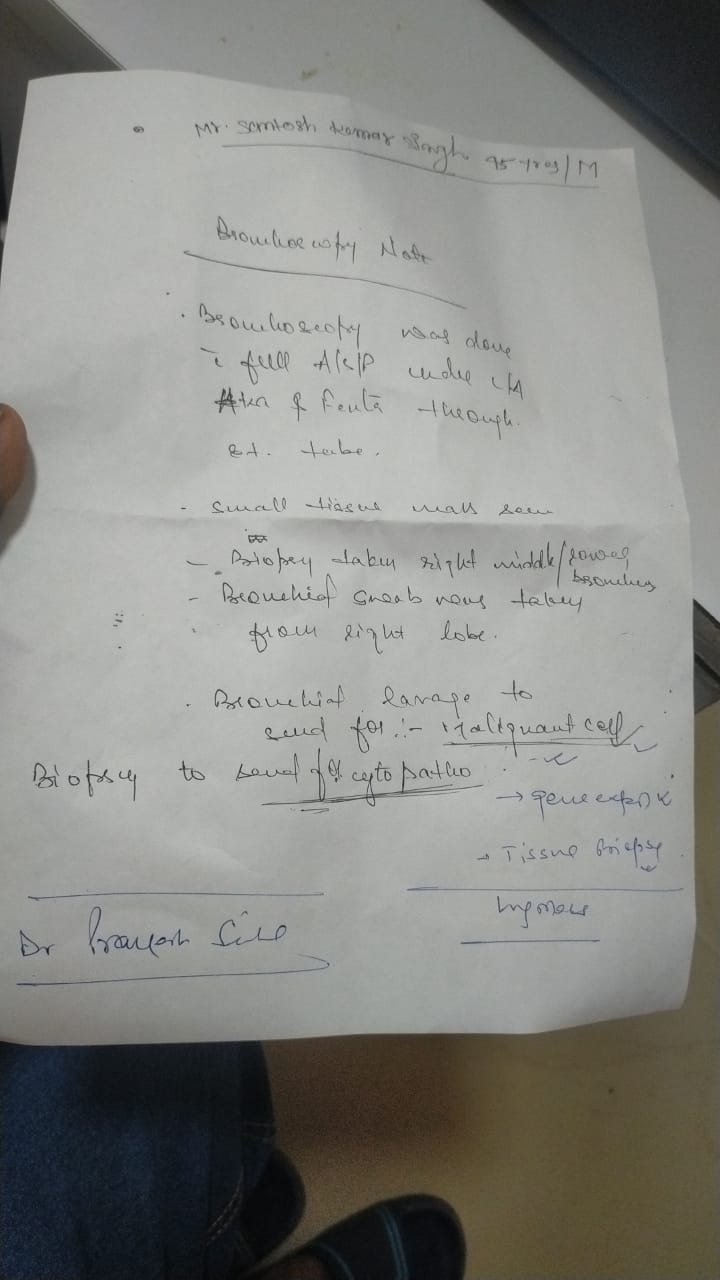 Mr. Santosh Kumar Singh 45 yrs/M
Bronchoscopy Note
. Bronchoscopy was done
c̄ full A/S/P under
& Fenta through
Et. tube.
- Small tissue mass seen
- Biopsy taken right middle/lower
bronchus
- Bronchial taken
from right lobe.
. Bronchial lavage to
send for :- Malignant cell
Biopsy to send for cyto patho
→ gene
→ Tissue Biopsy
Dr